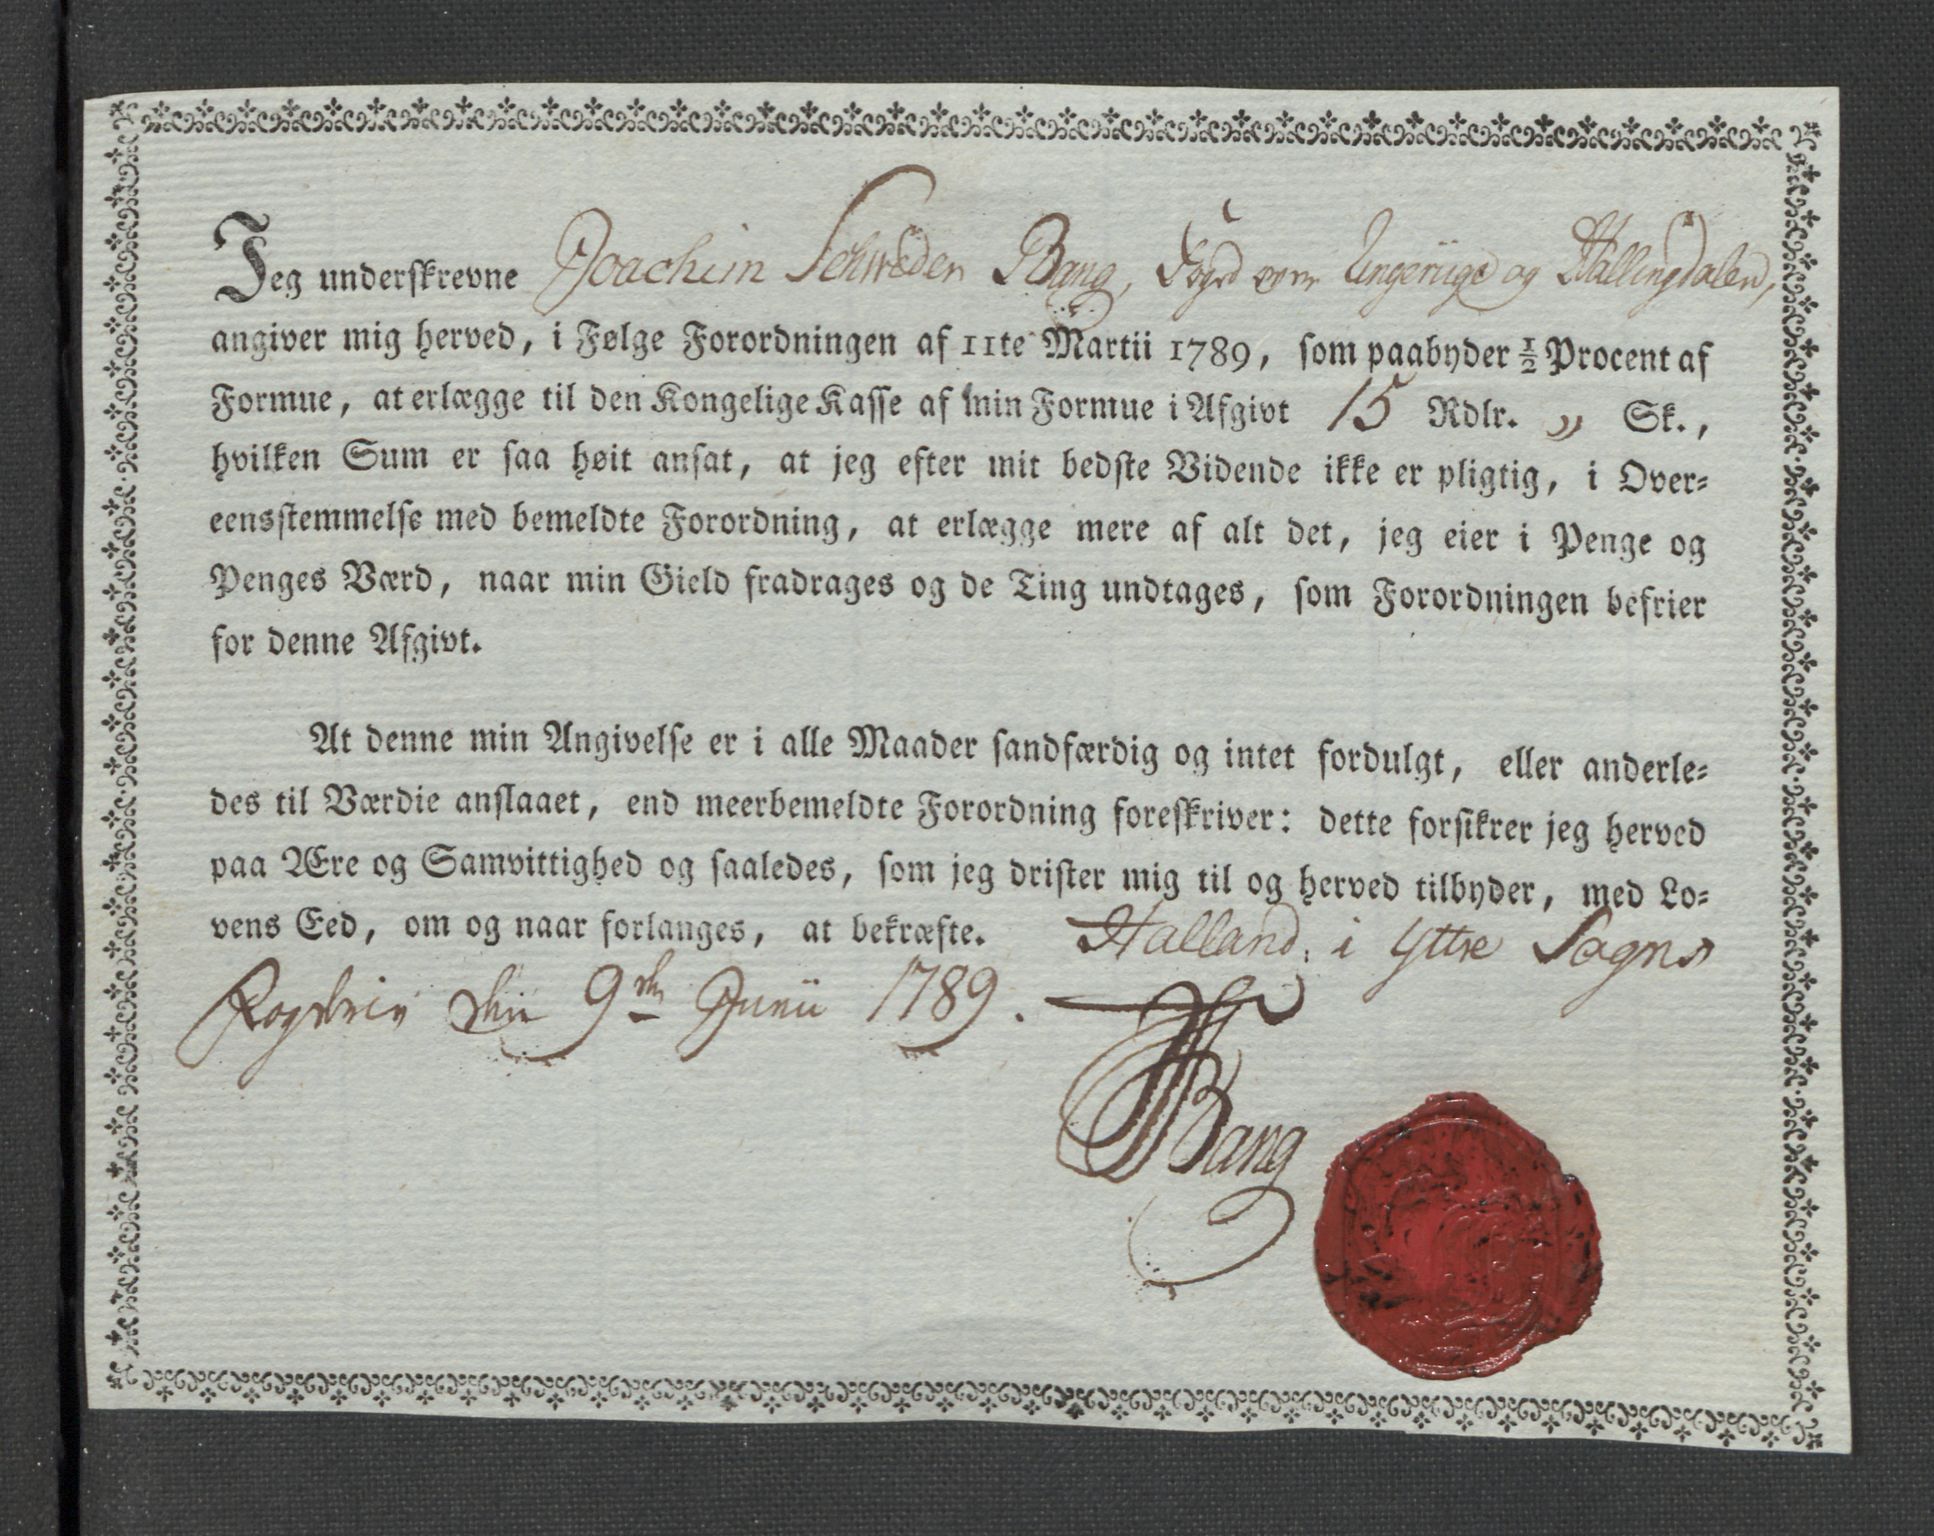 Jeg underskrevne Joachim Schweder Bang, Fogd over Ringeriige og Hallingdalen,
angiver mig herved, i Følge Forordningen af 11te Martii 1789, som paabyder ½ Procent af
Formue, at erlægge til den Kongelige Kasse af min Formue i Afgivt 15 Rdlr. „ Sk.,
hvilken Sum er saa høit ansat, at jeg efter mit bedste Vidende ikke er pligtig, i Over-
eensstemmelse med bemeldte Forordning, at erlægge mere af alt det, jeg eier i Penge og
Penges Værd, naar min Gield fradrages og de Ting undtages, som Forordningen befrier
for denne Afgivt.
At denne min Angivelse er i alle Maader sandfærdig og intet fordulgt, eller anderle-
des til Værdie anslaaet, end meerbemeldte Forordning foreskriver: dette forsikrer jeg herved
paa Ære og Samvittighed og saaledes, som jeg drister mig til og herved tilbyder, med Lo-
vens Eed, om og naar forlanges, at bekræfte. Halland i Yttre Sogns
Fogderie den 9de Junii 1789.
Bang